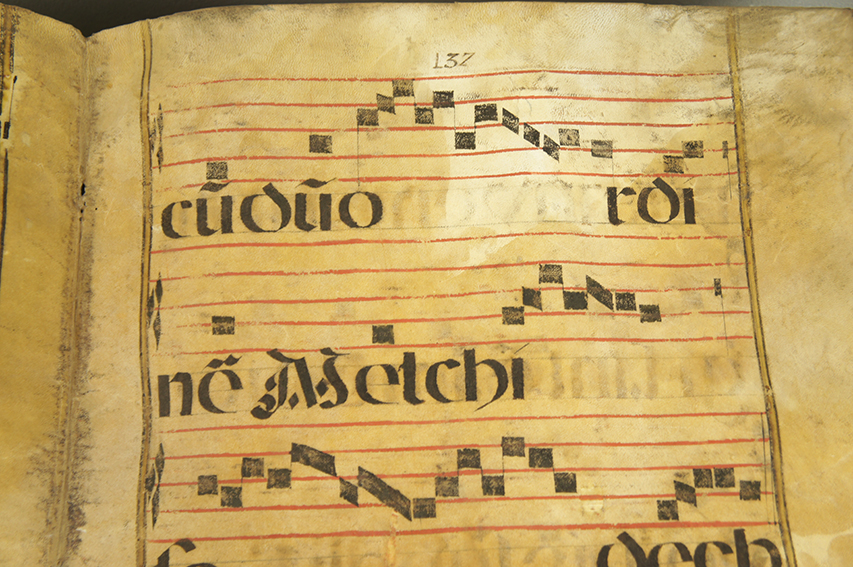 132
cũdũo rdi
nẽ Melchi
dech